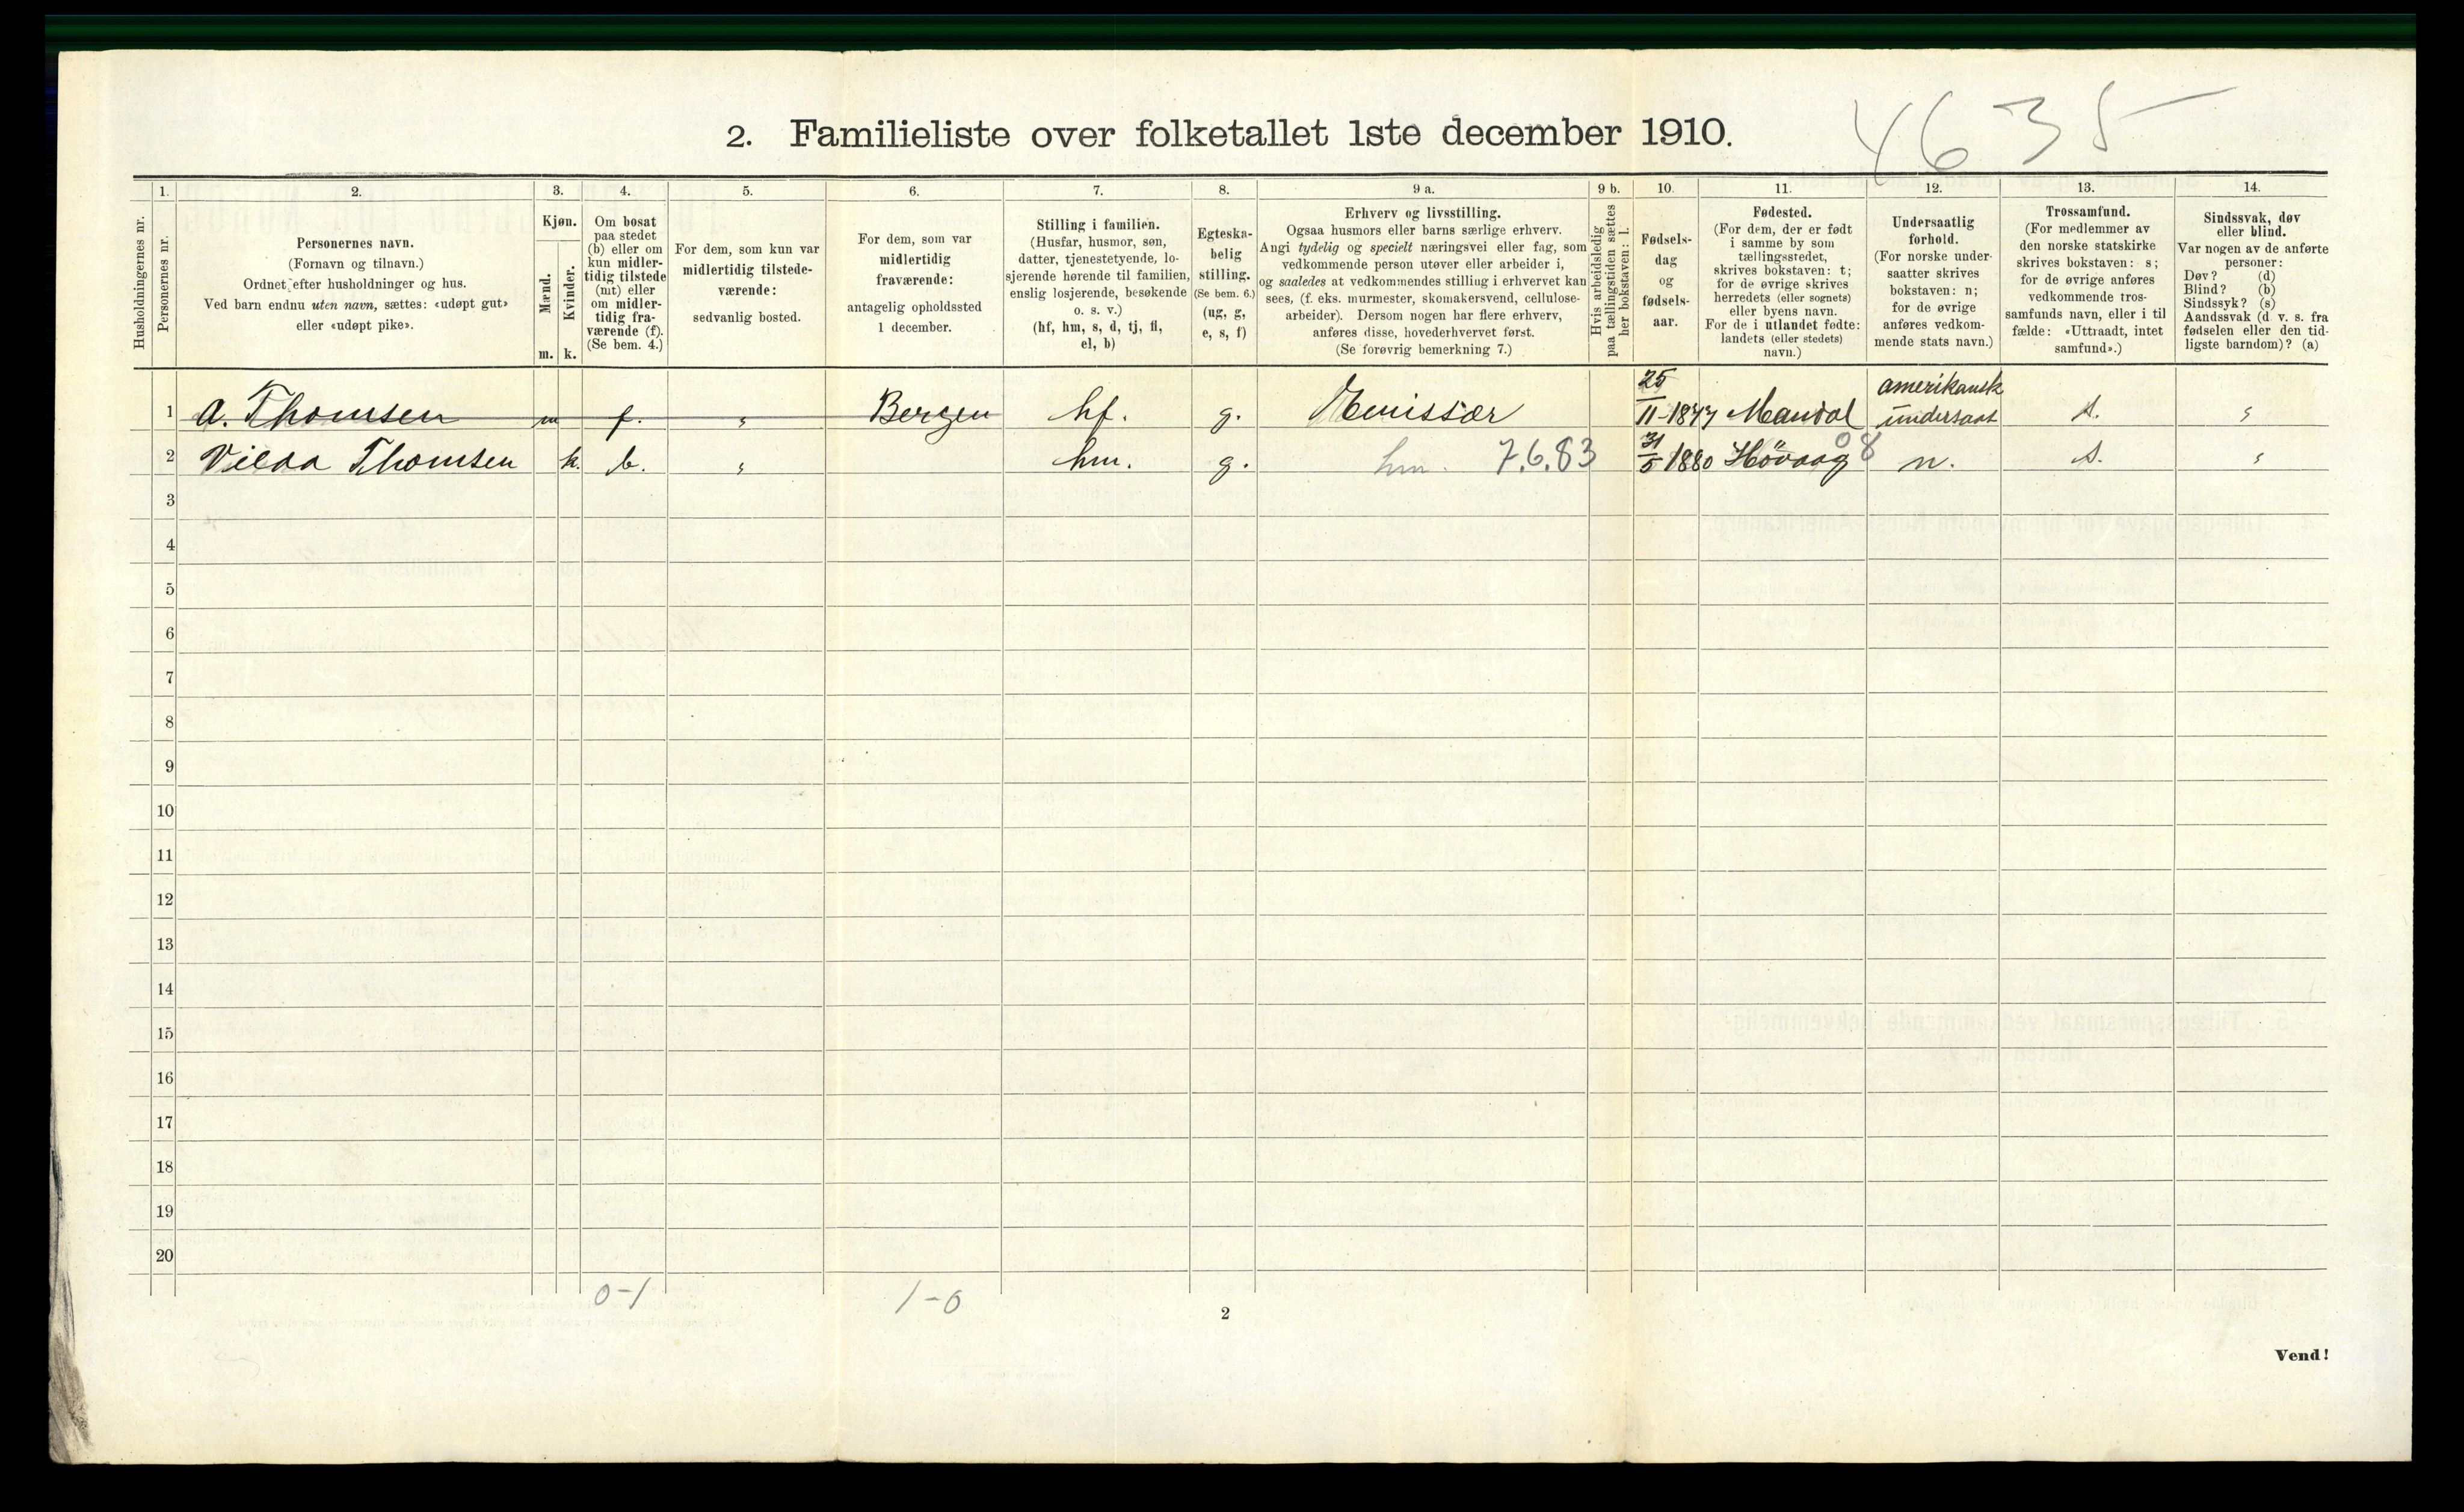 4635
2. Familieliste over folketallet 1ste december 1910.
1. 2. 3. 4. 5. 6. 7. 8. 9 a. 9 b. 10. 11. 12. 13. 14.
Husholdningernes nr.
Personernes nr.
Personernes navn.
(Fornavn og tilnavn.)
Ordnet efter husholdninger og hus.
Ved barn endnu uten navn, sættes: «udøpt gut»
eller «udøpt pike».
Kjøn.
Mænd.
Kvinder.
m. k.
Om bosat
paa stedet
(b) eller om
kun midler-
tidig tilstede
(mt) eller
om midler-
tidig fra-
værende (f).
(Se bem. 4.)
For dem, som kun var
midlertidig tilstede-
værende:
sedvanlig bosted.
For dem, som var
midlertidig
fraværende:
antagelig opholdssted
1 december.
Stilling i familien.
(Husfar, husmor, søn,
datter, tjenestetyende, lo-
sjerende hørende til familien,
enslig losjerende, besøkende
o. s. v.)
(hf, hm, s, d, tj, fl,
el, b)
Egteska-
belig
stilling.
(Se bem. 6.)
(ug, g,
e, s, f)
Erhverv og livsstilling.
Ogsaa husmors eller barns særlige erhverv.
Angi tydelig og specielt næringsvei eller fag, som
vedkommende person utøver eller arbeider i,
og saaledes at vedkommendes stilling i erhvervet kan
sees, (f. eks. murmester, skomakersvend, cellulose-
arbeider). Dersom nogen har flere erhverv,
anføres disse, hovederhvervet først.
(Se forøvrig bemerkning 7.)
Hvis arbeidsledig
paa tællingstiden sættes
her bokstaven: l.
Fødsels-
dag
og
fødsels-
aar.
Fødested.
(For dem, der er født
i samme by som
tællingsstedet,
skrives bokstaven: t;
for de øvrige skrives
herredets (eller sognets)
eller byens navn.
For de i utlandet fødte:
landets (eller stedets)
navn.)
Undersaatlig
forhold.
(For norske under-
saatter skrives
bokstaven: n;
for de øvrige
anføres vedkom-
mende stats navn.)
Trossamfund.
(For medlemmer av
den norske statskirke
skrives bokstaven: s;
for de øvrige anføres
vedkommende tros-
samfunds navn, eller i til
fælde: «Uttraadt, intet
samfund».)
Sindssvak, døv
eller blind.
Var nogen av de anførte
personer:
Døv? (d)
Blind? (b)
Sindssyk? (s)
Aandssvak (d. v. s. fra
fødselen eller den tid-
ligste barndom)? (a)
1 A. Thomsen m f. " Bergen hf. g. 25/11-1877 Mandal amerikansk undersaat s. "
2 Vilda Thomsen k. b. " hm. g. hm. 7.6.83 31/5 1880 Høvaag 08 n. s. "
3
4
5
6
7
8
9
10
11
12
13
14
15
16
17
18
19
20
0-1 1-0
2
Vend!